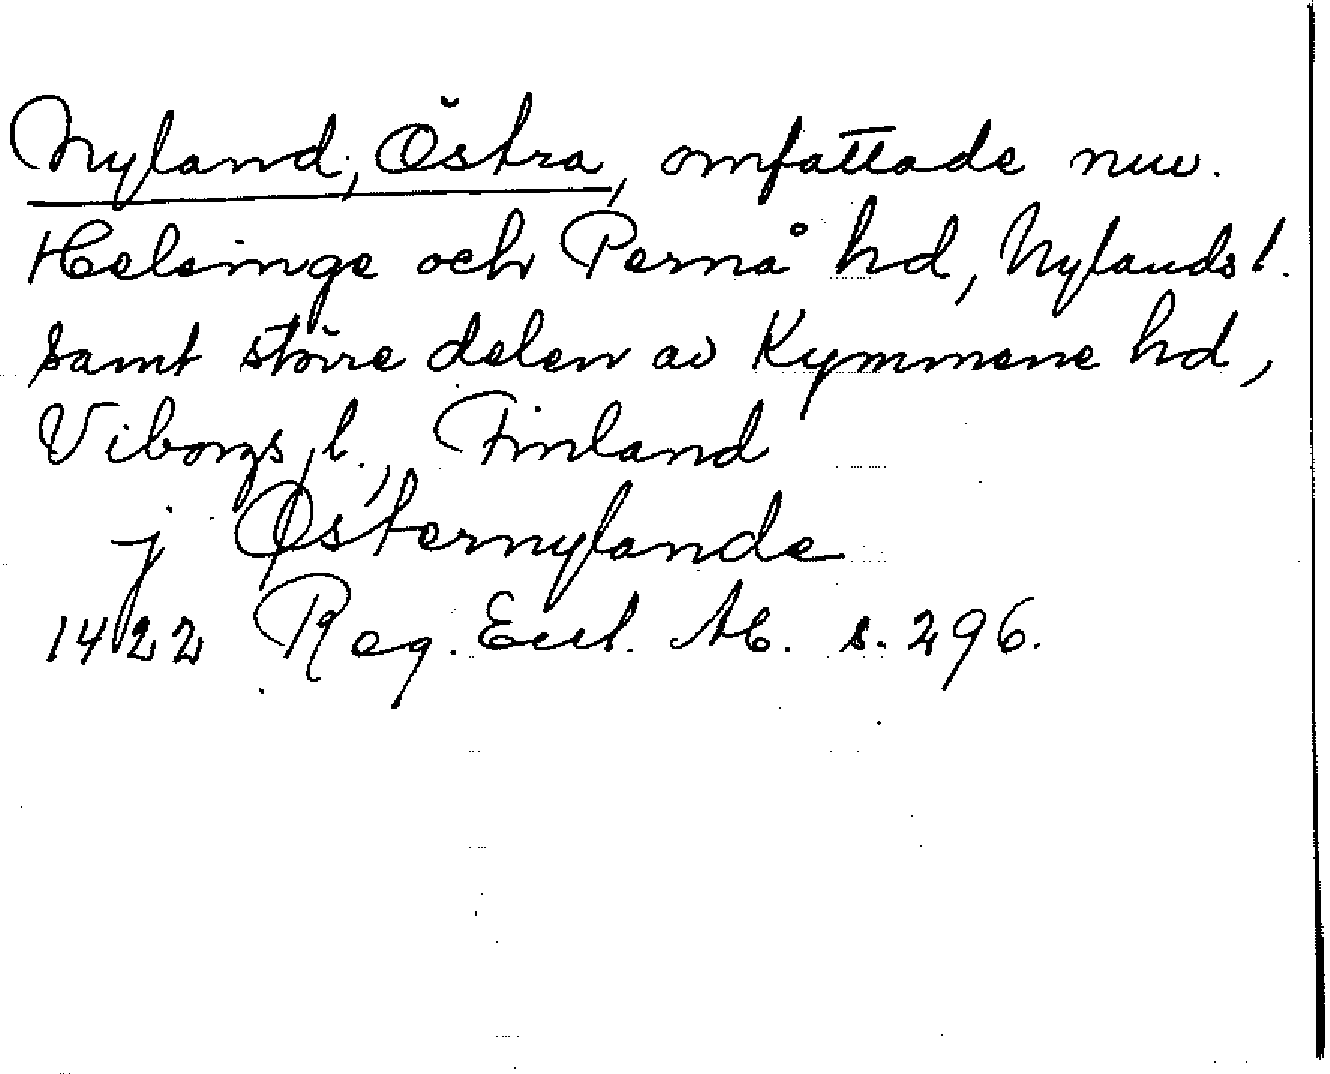 Nyland, Östra, omfattade nuv.
Helsinge och Pernå hd, Nylands l.
samt större delen av Kymmene hd,
Viborgs l., Finland
j Østernylande
1422 Reg. Eccl. Ab. s. 296.